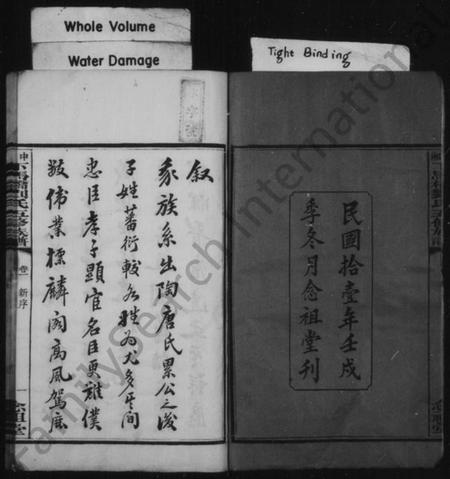 Whole Volume
Water Damage
Tight Binding
民國拾壹年壬戌
季冬月念祖堂刊
叙
家族系出陶唐氏累公之後
子姓蕃衍較各姓為尤多其間
忠臣孝子顯官名臣更難僕
数偉業標麟閣高風駕
卷一 新序
念祖堂
FamilySearch International